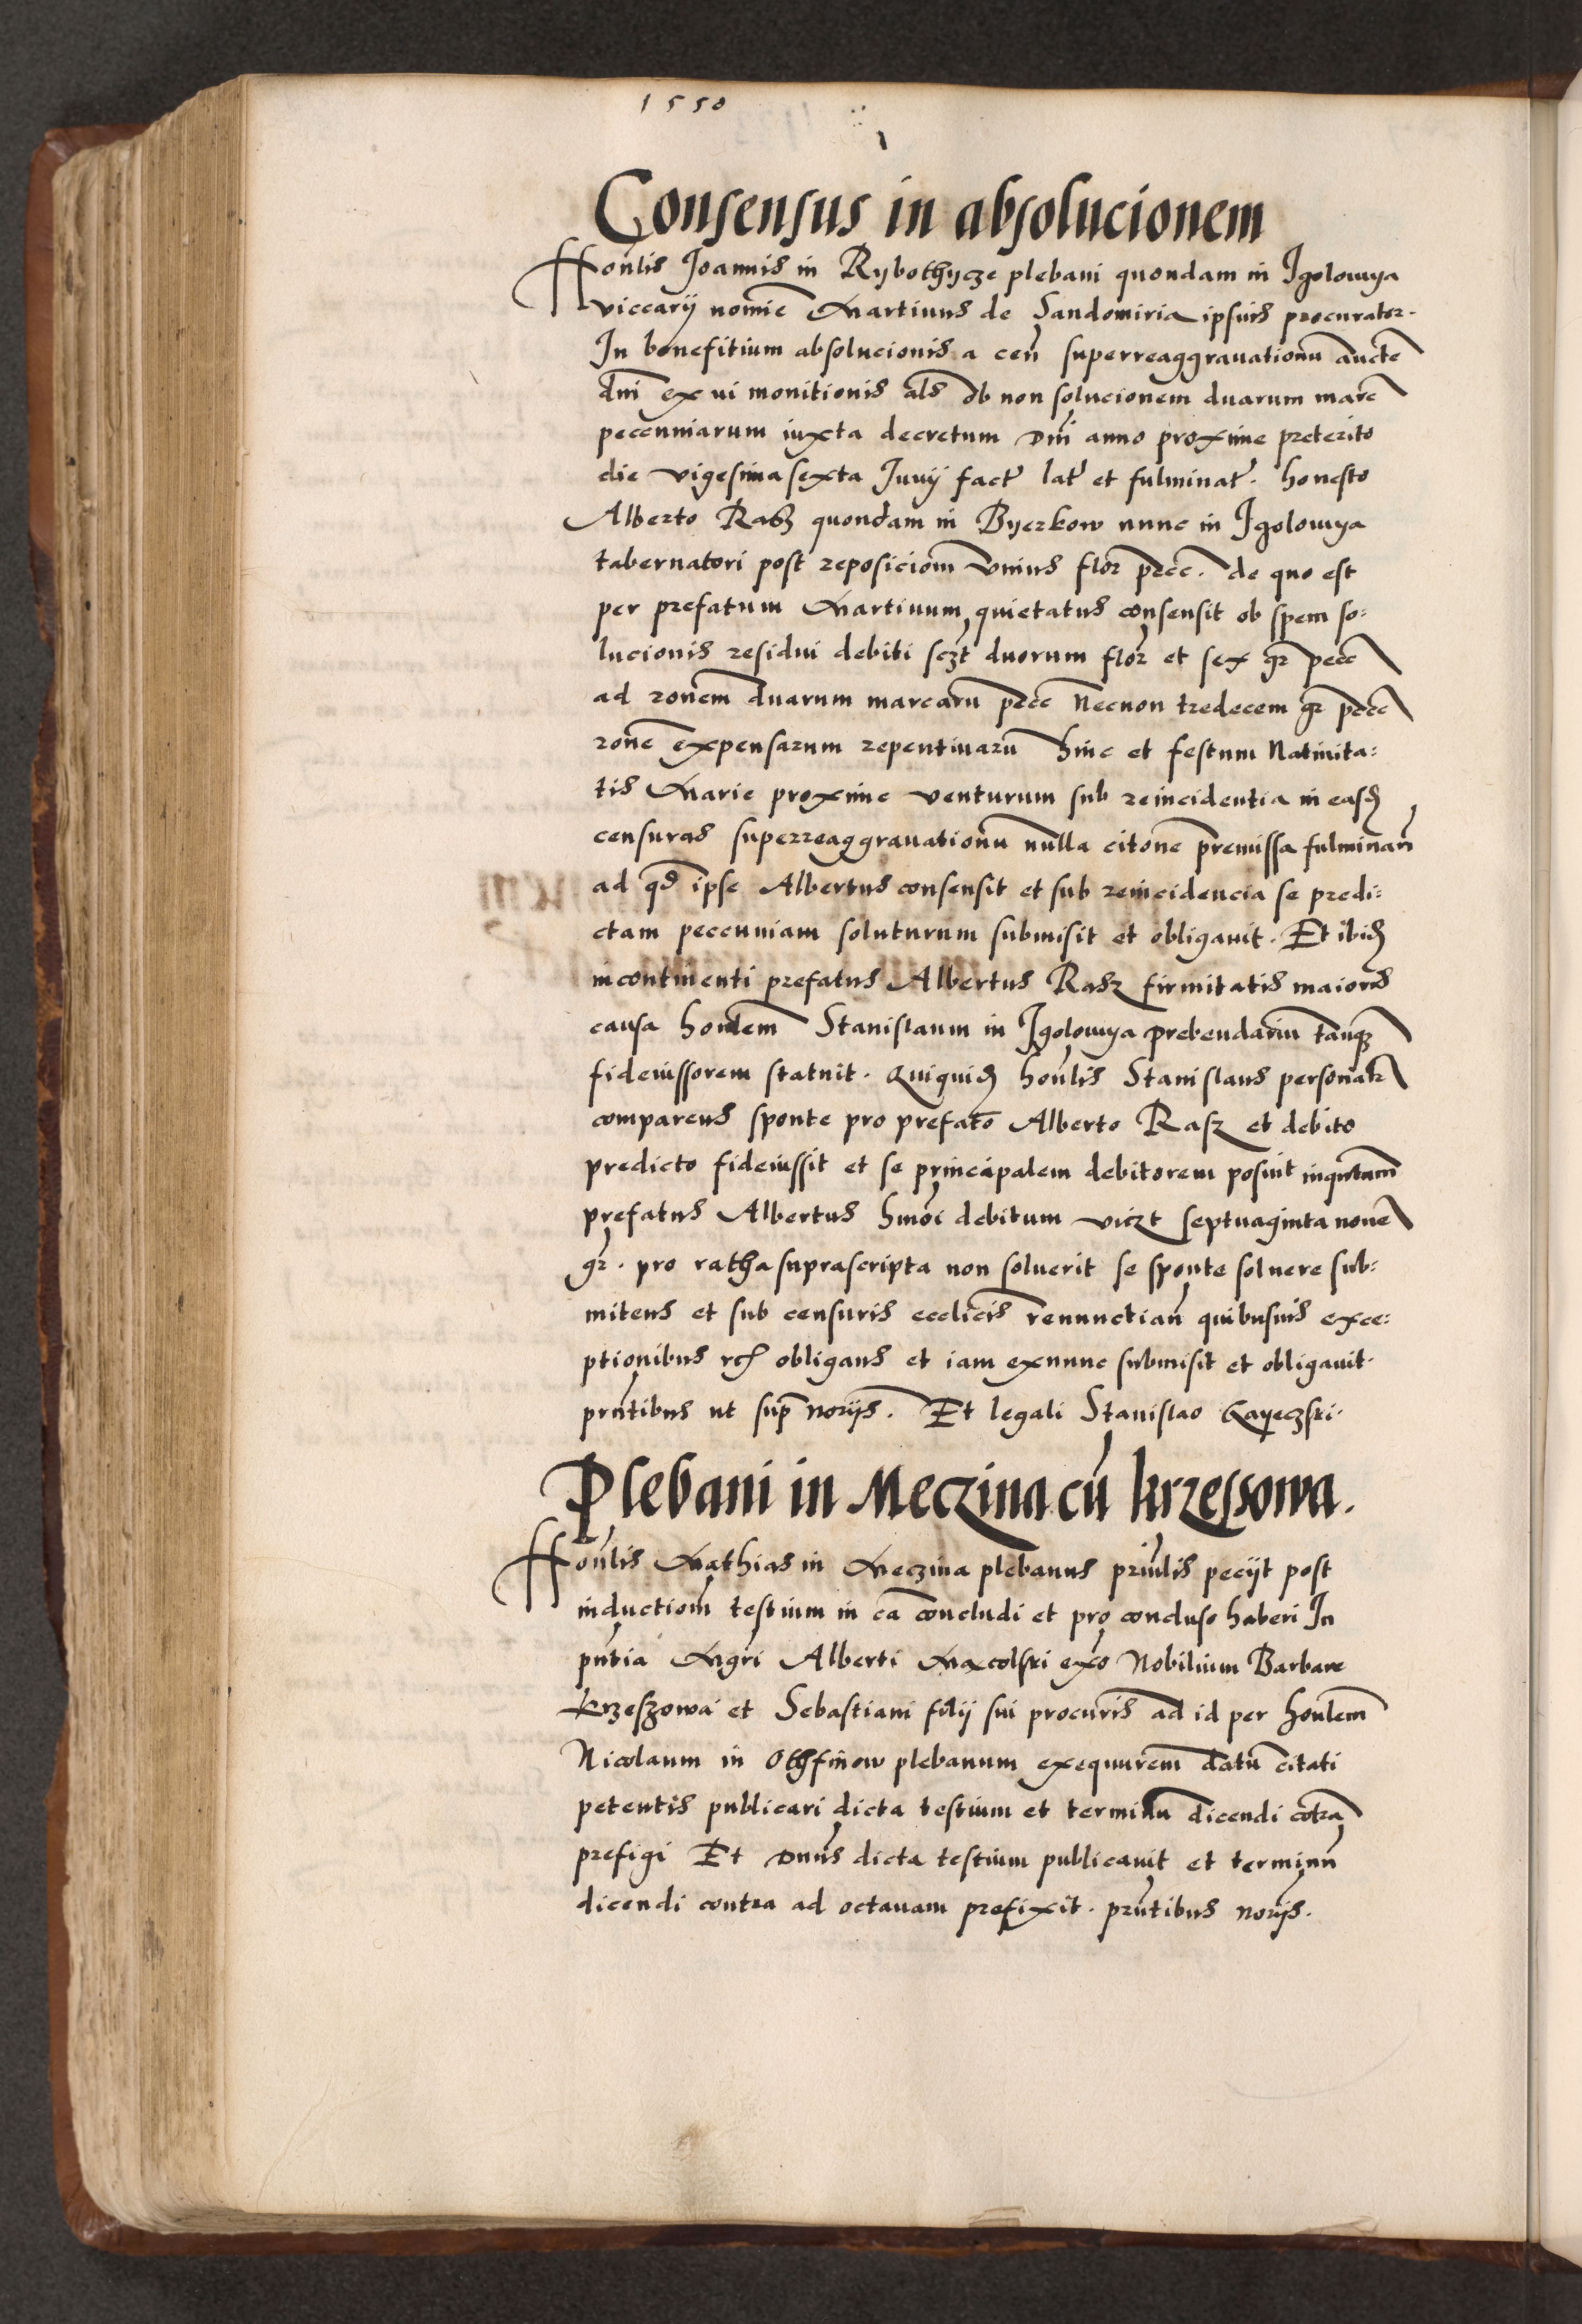 1550
Consensus in absolucionem
Honlis Joannis in Rybothycze plebani quondam in Igolomya
viccarij nomine Martinus de Sandomiria ipsius procurator.
In benefitium absolucionis a cen superreaggravationu aucte
dni ex vi monitionis als ob non solucionem duarum marc
peccuniarum iuxta decretum Dni anno proxime preterito
die vigesima sexta Junij fact lat et fulminat. honesto
Alberto Rasz quondam in Byerkow nunc in Igolomya
tabernatori post reposiciom unius flor pecc. de quo est
per prefatum Martinum quietatus consensit ob spem so:
lucionis residui debiti sczt duorum flor et sex gr pecc
ad ronem duarum marcaru pecc Necnon tredecem gr pecc
rone expensarum repentinaru hinc et festum Nativita:
tis Marie proxime venturum sub reincidentia in easd
censuras superreaggravationu nulla citone premissa fulminan
ad qd ipse Albertus consensit et sub reincidencia se predi:
ctam peccuniam soluturum submisit et obligavit. Et ibid
incontinenti prefatus Albertus Rasz firmitatis maioris
causa honlem Stanislaum in Igolomya prebendariu tanq
fideiussorem statuit. Quiquid honlis Stanislaus personalr
comparens sponte pro prefato Alberto Rasz et debito
predicto fideiussit et se principalem debitorem posuit inquntum
prefatus Albertus hmoi debitum viczt septuaginta nove
gr. pro ratha suprascripta non soluerit se sponte solvere sub:
mitens et sub censuris ecclicis renunctian quibusvis exce:
ptionibus rc obligans et iam exnunc submisit et obligavit.
prntibus ut sup noriis. Et legali Stanislao Gayeczski.
Plebani in Meczina cu krzessowa.
Honlis Mathias in Meczina plebanus prinlis peciit post
inductiom testium in ca concludi et pro concluso haberi In
pntia Mgri Alberti exo Nobilium Barbare
Krzeszowa et Sebastiani filij sui procuris ad id per honlem
Nicolaum in Othfinow plebanum exequurem datu citati
petentis publicari dicta testium et terminu dicendi cotra
prefigi Et Dnus dicta testium publicavit et terminu
dicendi contra ad octavam prefixit. prntibus noriis.